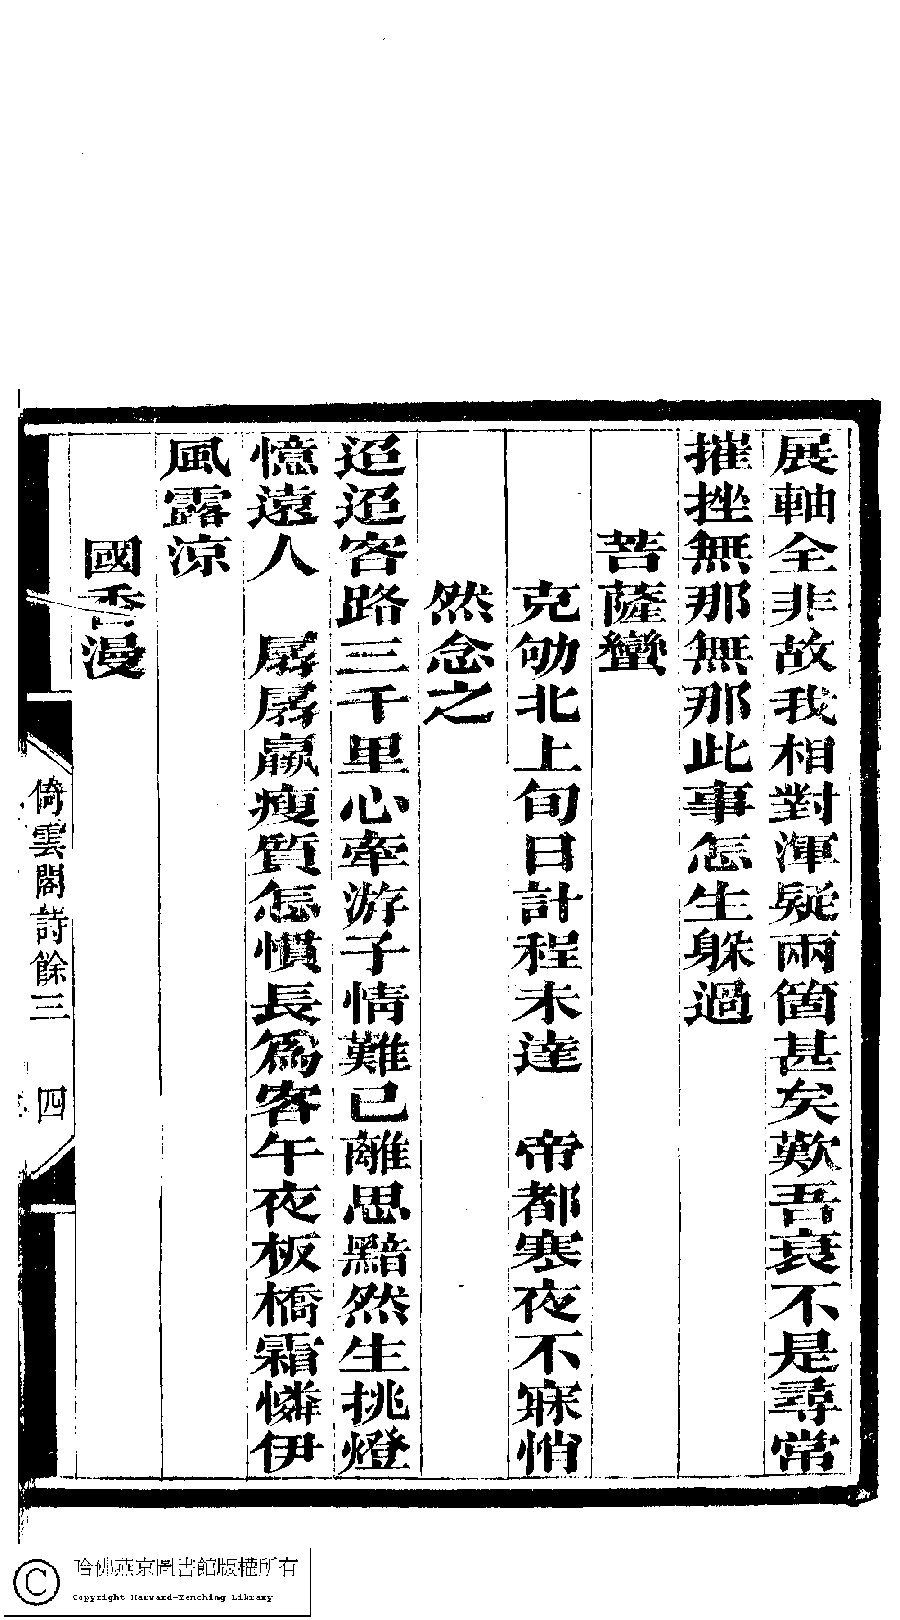 展軸全非故我相對渾疑兩箇甚矣歎吾衰不是尋常
摧挫無那無那此事怎生躲過
菩薩蠻
克劬北上旬日計程未達　帝都寒夜不寐悄
然念之
迢迢客路三千里心牽游子情難已離思黯然生挑燈
憶遠人　孱孱羸瘦質怎慣長為客午夜板橋霜憐伊
風露涼
國香漫
倚雲閣詩餘三　四
哈佛燕京圖書館版權所有
Copyright Harvard-Yenching Library